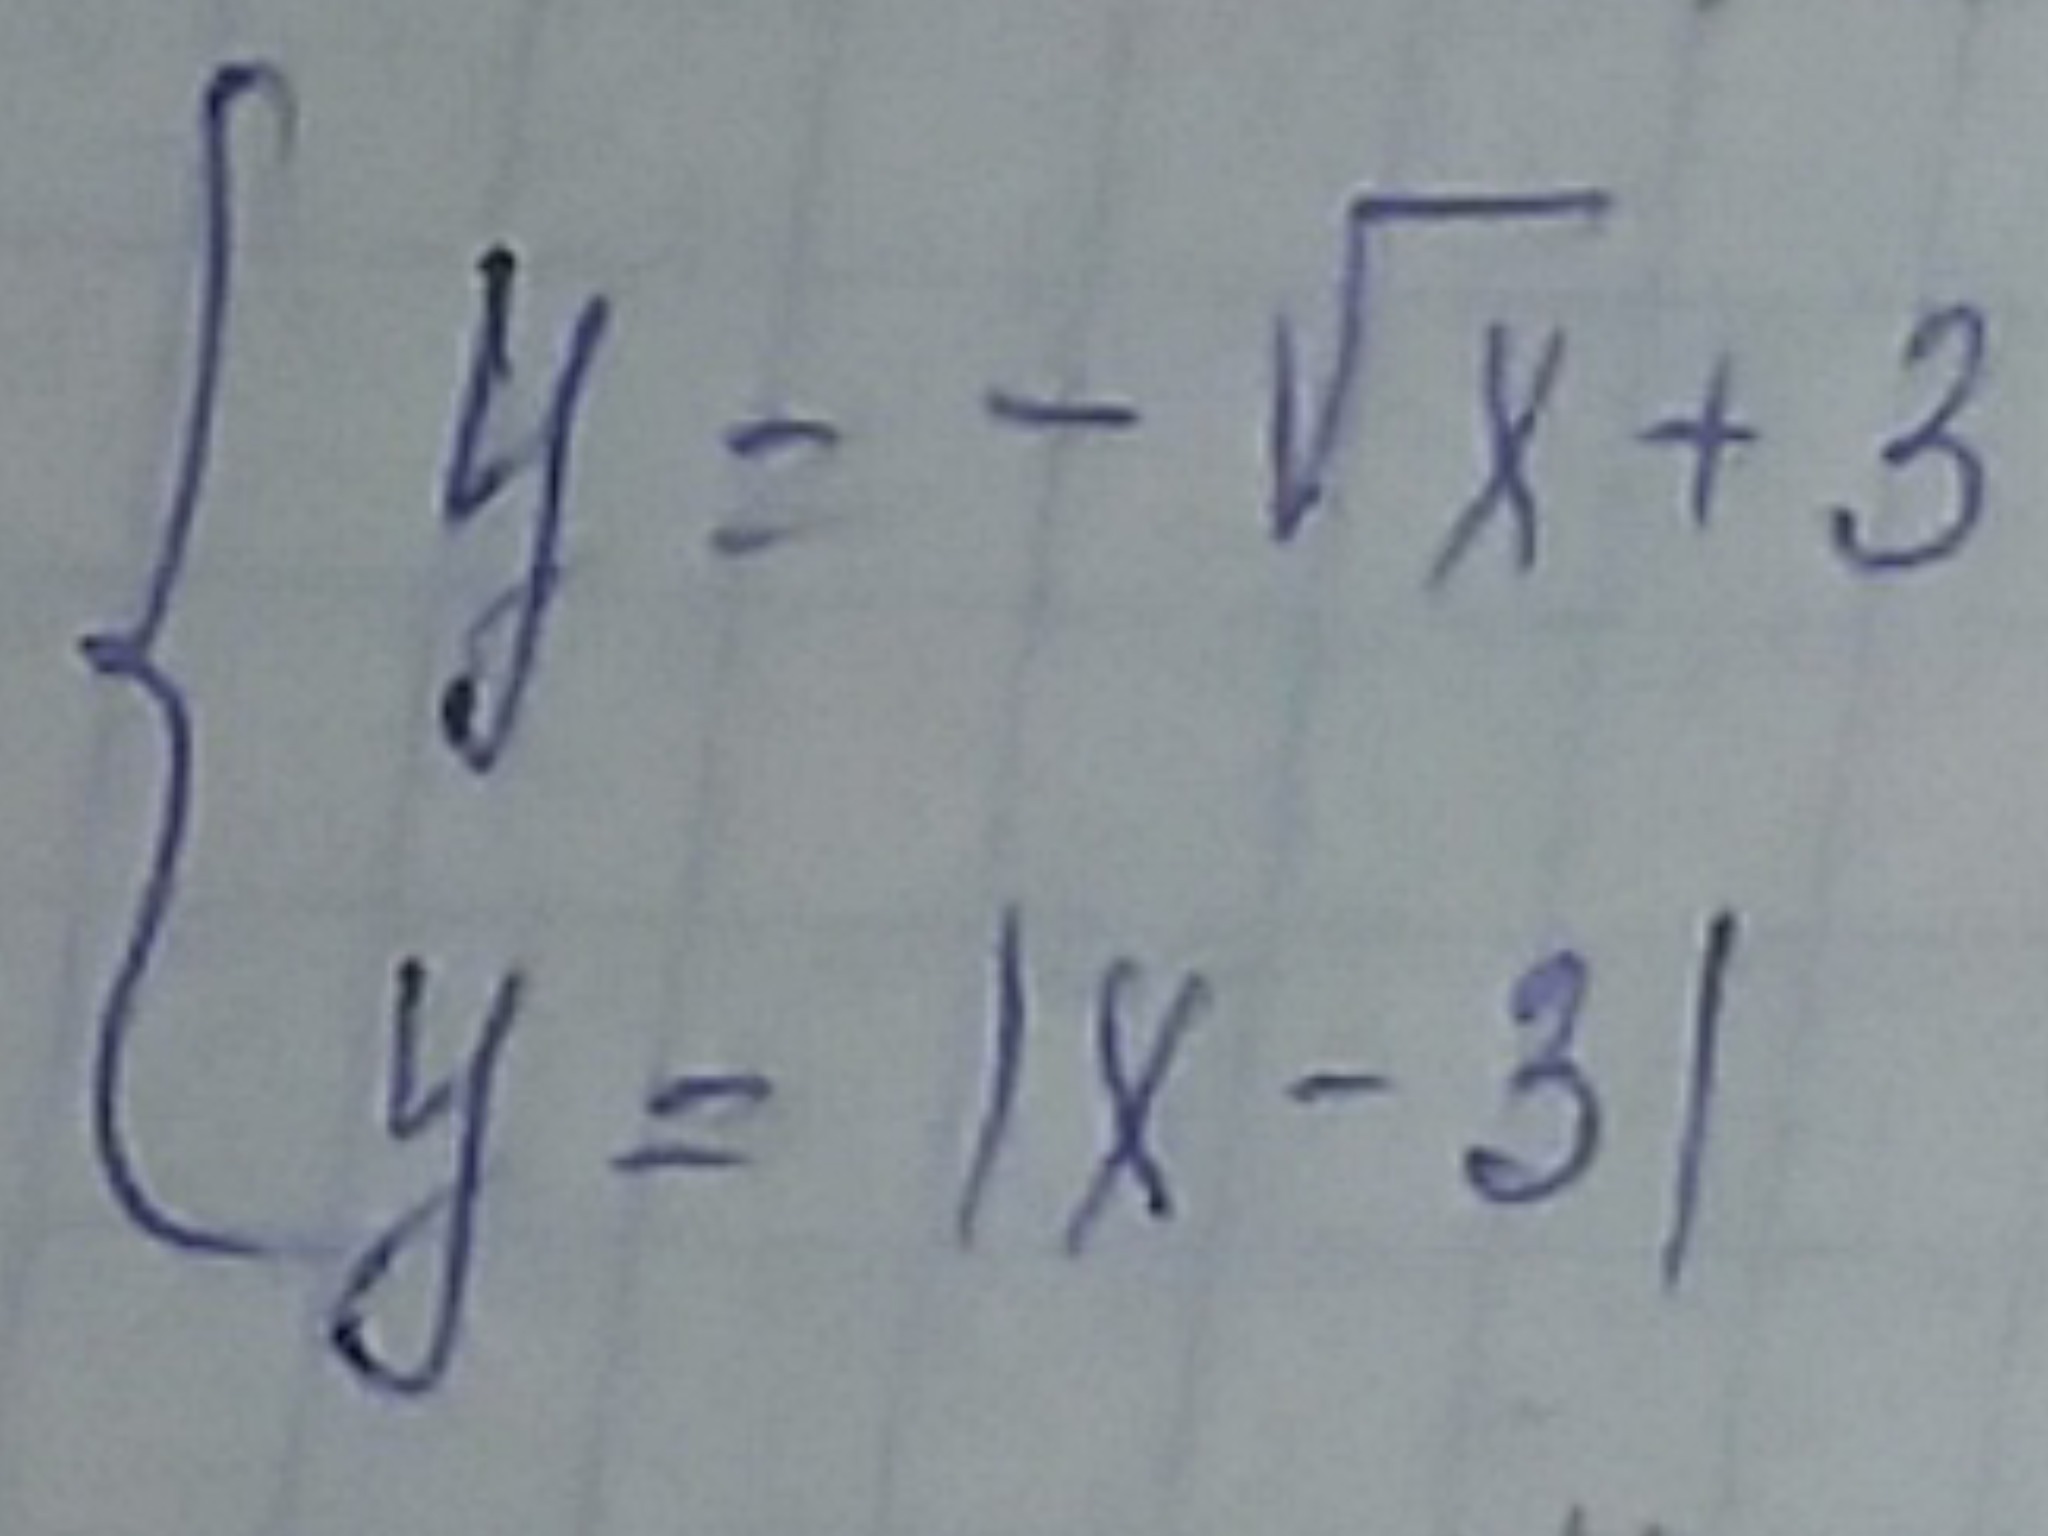 y = - √x + 3
y = |x - 3|